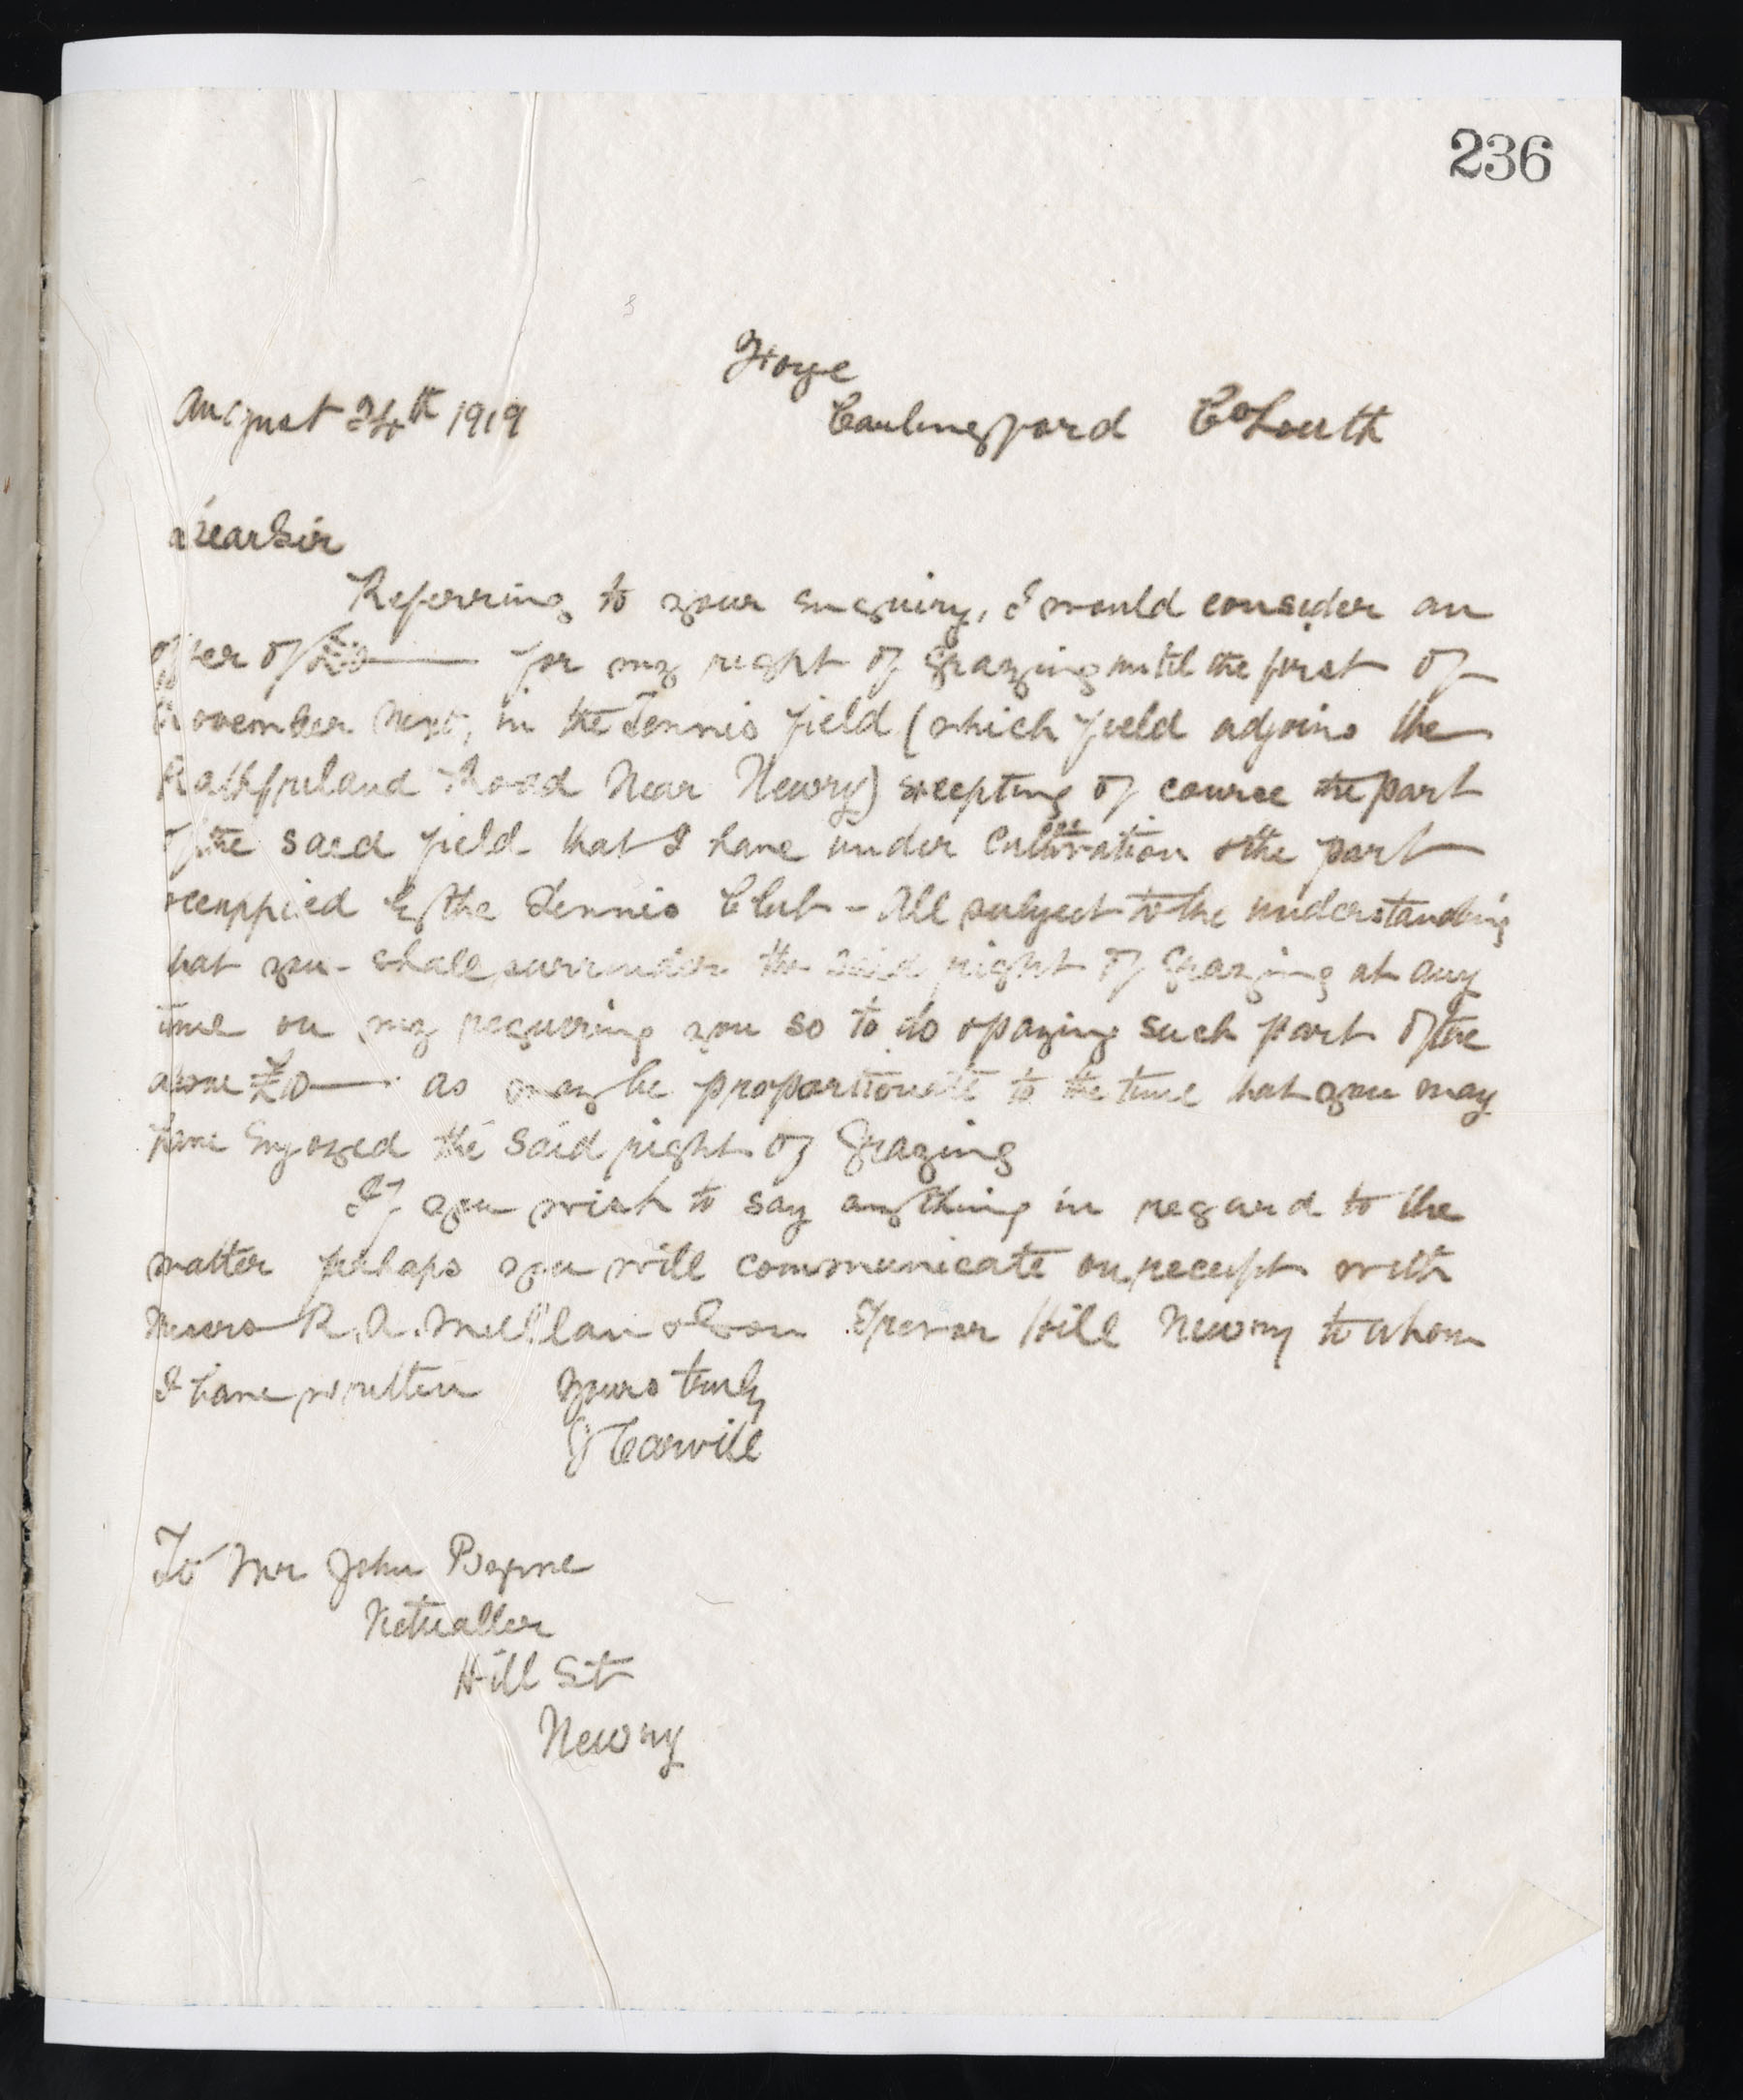 236
Foye
August 24th 1919 Carlingford Co Louth
Dear Sir
Referring to your enquiry, I would consider an
offer of £10—— for my right of grazing until the first of
November next, in the Tennis field (which field adjoins the
Rathfriland Road Near Newry) excepting of course the part
of the said field that I have under Cultivation & the part
occuppied by the Tennis Club - All subject to the understanding
that you shall surrender the said right of grazing at any
time on my requiring you so to do & paying such part of the
above £10—— as may be proportionate to the time that you may
have Enjoyed the said right of Grazing
If you wish to say anything in regard to the
matter perhaps you will communicate on receipt with
Messrs R. A. Mullan & Son Trevor Hill Newry to whom
I have written Yours truly
J Carvill
To Mr John Byrne
Victualler
Hill St
Newry